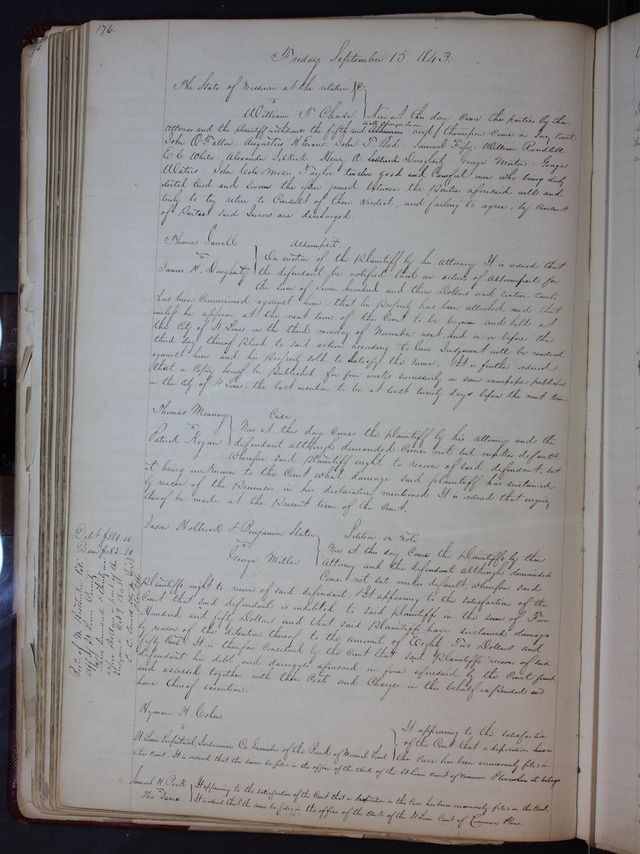 176.
Friday September 15 1843.
The State of Missouri at the relation &c
vs
William F. Chase Now at this day come the parties by their
attornies and the plaintiff withdraws the fifth and and thereupon come a Jury to wit
John O'Fallon Augustus H Evans John T Samuel William
E. C. White, Alexander Henry A Dougherty George Morton, George
Waters John Cole Moses Taylor twelve good and lawful men who being duly
elected tried and sworn the issue joined between the parties aforesaid well and
truly to try retire to consider of their verdict, and failing to agree, by consent
of Parties said Jurors are discharged.
Thomas Assumpsit.
vs
James H. Dougherty On motion of the Plaintiff by his attorney It is ordered that
the defendant be notified that an action of Assumpsit for
the sum of seven hundred and three Dollars and sixteen cents
has been commenced against him. that his property has been attached and that
unless he appear at the next term of this Court to be begun and held at
the City of St Louis on the third monday of November next and on or before the
third day thereof plead to said action according to law Judgment will be rendered
against him and his property sold to satisfy the same. It is further ordered
that a copy hereof be published for four weeks successively in some newspaper published
in the City of St Louis, the last insertion to be at least twenty days before the next term
Thomas Case
vs
Patrick Regan Now at this day comes the plaintiff by his attorney and the
defendant although demanded comes not but makes default
Wherefore said plaintiff ought to recover of said defendant, but
it being unknown to the Court what damages said plaintiff has sustained
by reason of the premises in his declaration mentioned It is ordered that inquiry
thereof be made at the present term of the Court.
Jason Holbrook & Benjamin Slater Petition on Note
vs
George Miller Now at this day come the plaintiffs by their
attorney and the defendant although demanded
comes not but makes default wherefore said
Debt $550.00
Dam $82.50
plaintiffs ought to recover of said defendant. It appearing to the satisfaction of the
Court that said defendant is indebted to said plaintiffs in the sum of Five
Hundred and fifty Dollars and that said Plaintiffs have sustained damages
by reason of the detention thereof to the amount of Eighty Two Dollars and
fifty Cents It is therefore considered by the Court that said plaintiffs recover of said
defendant his debt and damages aforesaid in form aforesaid by the Court found
and assessed together with their Costs and Charges in this behalf expended and
have thereof execution.
Hyman H Cohen
vs
St Louis Perpetual Insurance Co Garnishee of the Bank of It appearing to the satisfaction
of the Court that a deposition in
the case has been erroneously filed in
this Court. It is ordered that the same be filed in the office of the clerk of the St Louis Court of Common Pleas
Samuel H. It appearing to the satisfaction of the Court that a deposition in the case has been erroneously filed in this Court,
vs
The Same It is ordered that the same be filed in the office of the clerk of the St Louis Court of Common Pleas